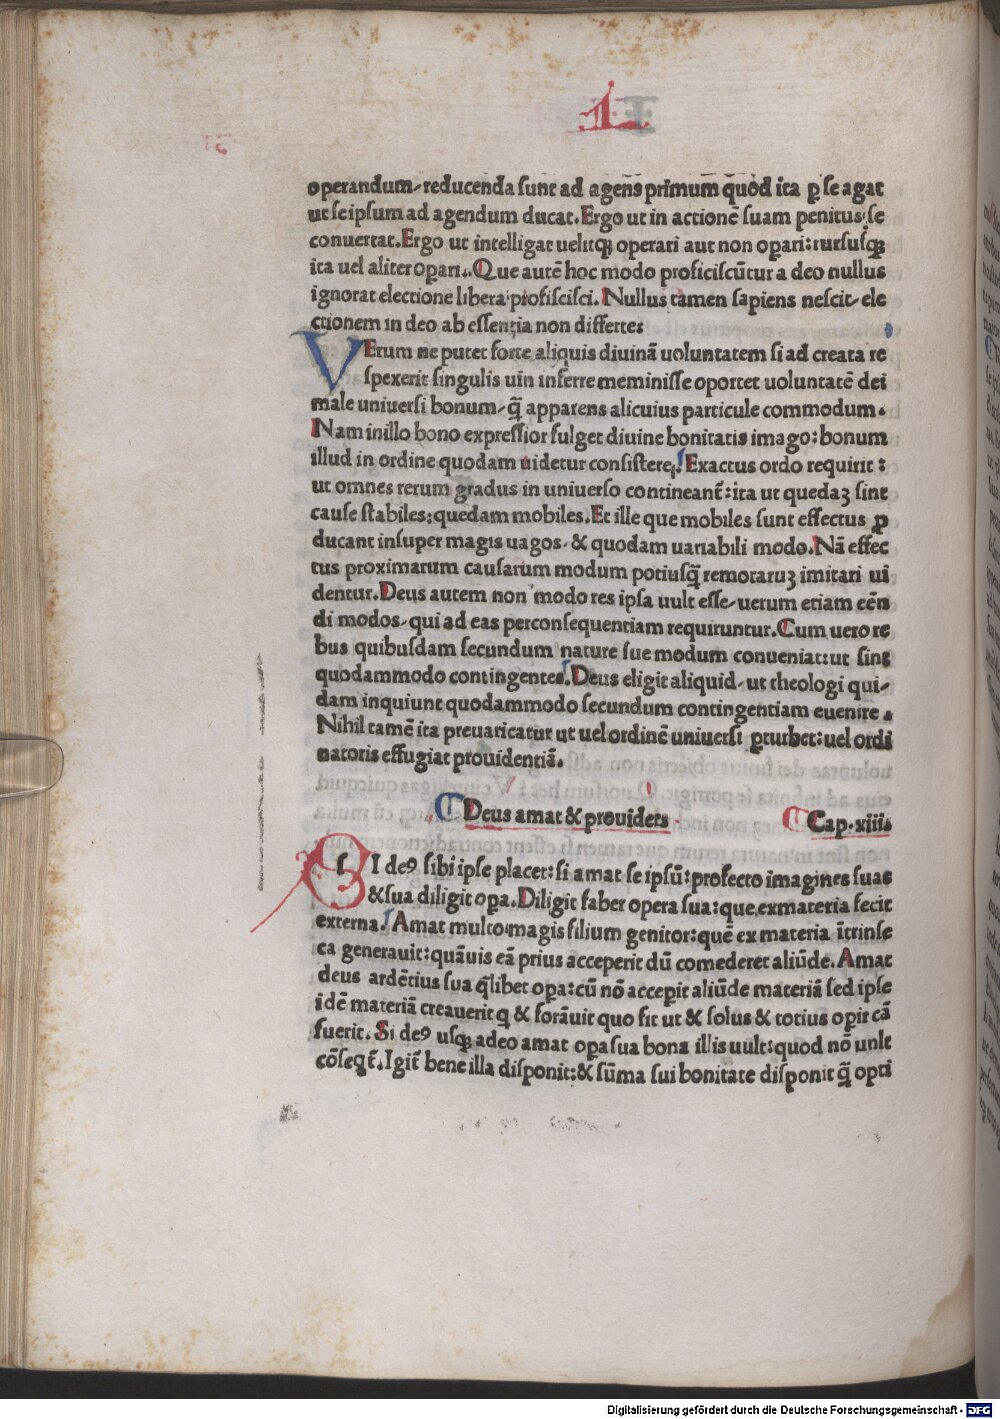 1
operandum-reducenda sunt ad agens primum quod ita ꝑ se agat
ut seipsum ad agendum ducat. Ergo ut in actionē suam penitus se
conuertat. Ergo ut intelligat uelitqꝫ operari aut non opari: rursusqꝫ
ita uel aliter opari. Que autē hoc modo proficiscūtur a deo nullus
ignorat electione libera profiscisci. Nullus tamen sapiens nescit-ele
ctionem in deo ab essentia non differtes
VErum ne putet forte aliquis diuinā uoluntatem si ad creata re
spexerit singulis uin inferre meminisse oportet uoluntatē dei
male uniuersi bonum-q̄ apparens alicuius particule commodum.
Nam in illo bono expressior fulget diuine bonitatis imago: bonum
illud in ordine quodam uidetur consistere. Exactus ordo requirit:
ut omnes rerum gradus in uniuerso contineant̄: ita ut quedaꝫ sint
cause stabiles: quedam mobiles. Et ille que mobiles sunt effectus ꝓ
ducant insuper magis uagos- & quodam uariabili modo. Nā effec
tus proximarum causarum modum potiusq̄ remotaruꝫ imitari ui
dentur. Deus autem non modo res ipsa uult esse-uerum etiam eēn
di modos-qui ad eas per consequentiam requiruntur. Cum uero re
bus quibusdam secundum nature sue modum conueniat: ut sint
quodammodo contingentes. Deus eligit aliquid-ut theologi qui-
dam inquiunt quodammodo secundum contingentiam euenire.
Nihil tamē ita preuaricatur ut uel ordinē uniuersi ꝑturbet: uel ordi
natoris effugiat prouidentiā.
Deus amat & prouidets Cap. xiii.
SI deꝰ sibi ipse placet: si amat se ipsū: profecto imagines suas
& sua diligit opa. Diligit faber opera sua: que ex materia fecit
externa. Amat multo magis filium genitor: quē ex materia ītrinse
ca generauit: quāuis eā prius acceperit dū comederet aliūde. Amat
deus ardētius sua q̄libet opa: cū nō accepit aliūde materiā sed ipse
idē materiā creauerit q & forāuit quo fit ut & solus & totius opis cā
fuerit. Si deꝰ usqꝫ adeo amat opa sua bona illis uult: quod nō unlt
cōseqt̄. Igit̄ bene illa disponit: & sūma sui bonitate disponit q̄ opti
Digitalisierung gefördert durch die Deutsche Forschungsgemeinschaft - DFG